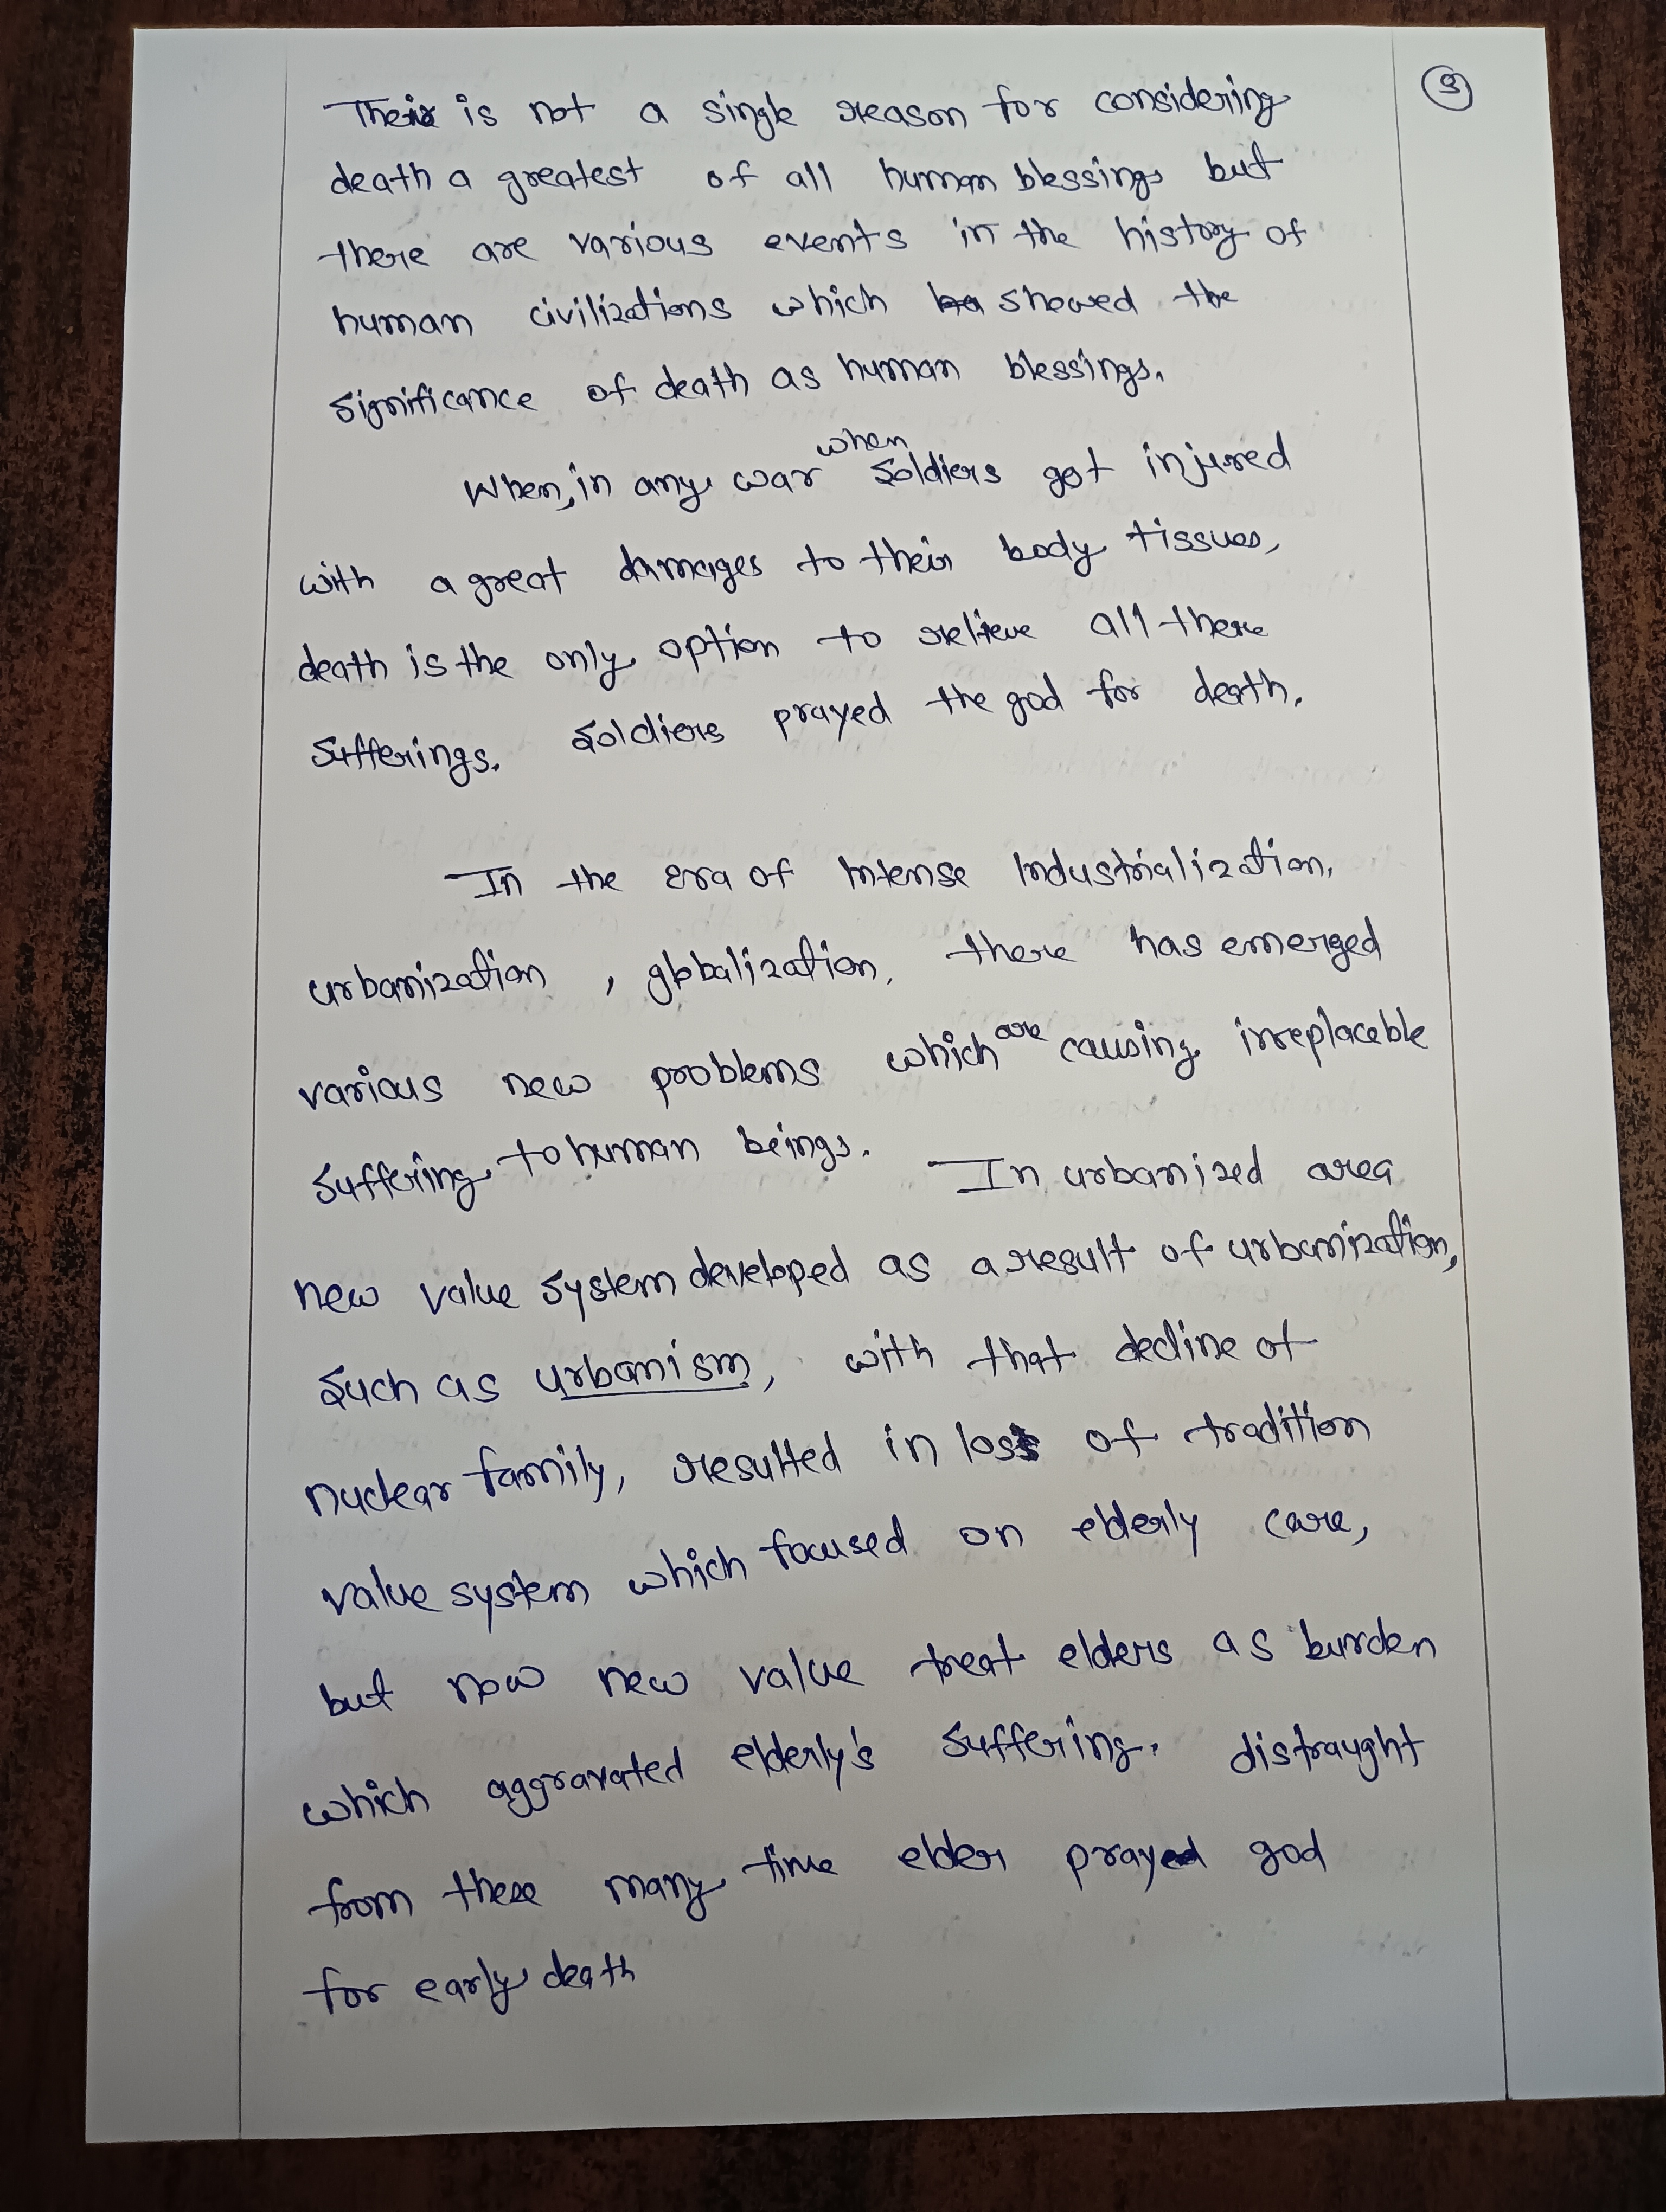 9
Their is not a single reason for considering
death a greatest of all human blessings but
there are various events in the history of
human civilizations which showed the
significance of death as human blessings.
when
When, in any war soldiers got injured
with a great damages to their body tissues,
death is the only option to relieve all there
sufferings. Soldiers prayed the god for death.
In the era of Intense Industrialization,
urbanization , globalization, there has emerged
various new problems which are causing irreplaceble
suffering to human beings. In urbanized area
new value system developed as a result of urbanization,
such as urbanism, with that decline of
nuclear family, resulted in loss of tradition
value system which focused on elderly care,
but now new value treat elders as burden
which aggravated elderly's suffering. distraught
from these many time elder prayed god
for early death